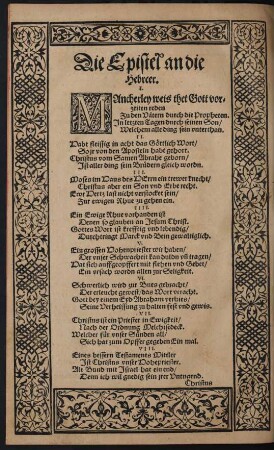 Die Epistel an die
Hebreer.
I.
MAncherley weis thet Gott vor-
zeiten reden
Zu den Vätern durch die Propheten.
In letzten Tagen durch seinen Son/
Welchem alle ding sein unterthan.
II.
Habt fleissig in acht das Göttlich Wort/
So jr von den Aposteln habt gehort.
Christus vom Samen Abrahe geborn/
Ist aller ding sein Brüdern gleich wordn.
III.
Moses im Haus des HErn ein trewer knecht/
Christus aber ein Son und Erbe recht.
Ewr Hertz last nicht verstockt sein/
Zur ewigen Rhue zu gehen ein.
IIII.
Ein Ewige Rhue vorhanden ist
Denen so glauben an Jesum Christ.
Gottes Wort ist krefftig und lebendig/
Durchdringt Marck und Bein gewaltiglich.
V.
Ein grossen Hohenpriester wir haben/
Der unser Schwacheit kan duldn und tragen/
Hat sich auffgeopffert mit flehen und Gebet/
Ein ursach worden allen zur Seligkeit.
VI.
Schwerlich wird zur Buss gebracht/
Der erleucht gewest/ das Wort veracht.
Gott der einem Eyd Abraham verhies/
Seine Verheissung zu halten fest und gewis.
VII.
Christus ist ein Priester in Ewigkeit/
Nach der Ordnung Melchisedeck.
Welcher für unser Sünden all/
Sich hat zum Opffer gegeben Ein mal.
VIII.
Eines bessern Testaments Mitler
Ist Christus unser Hohepriester.
Alt Bund mit Israel hat ein end/
Denn ich wil gnedig sein jrer Untugend.
Christus